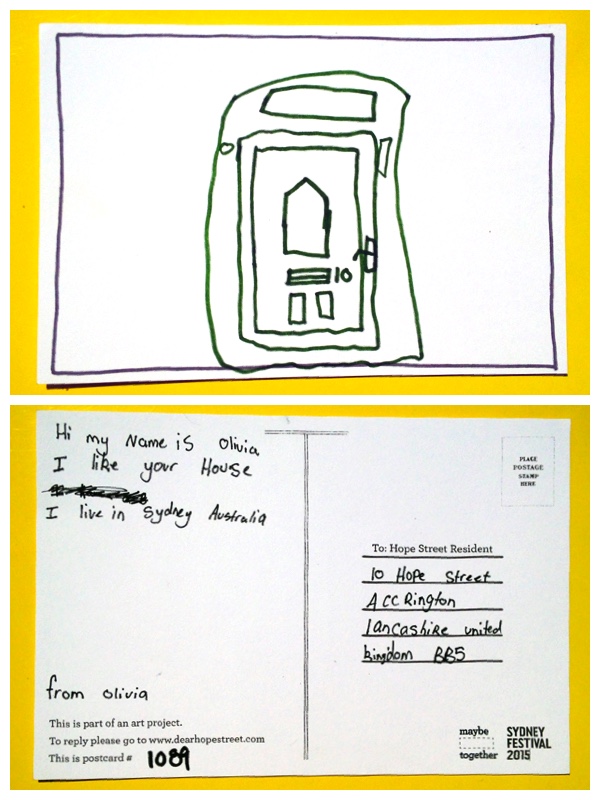 10
Hi my Name is Olivia
I like your House
I live in Sydney Australia
from Olivia
This is part of an art project.
To reply please go to www.dearhopestreet.com
This is postcard # 1089
PLACE
POSTAGE
STAMP
HERE
To: Hope Street Resident
10 Hope Street
Accrington
lancashire united
kingdom BB5
maybe
together
SYDNEY
FESTIVAL
2015